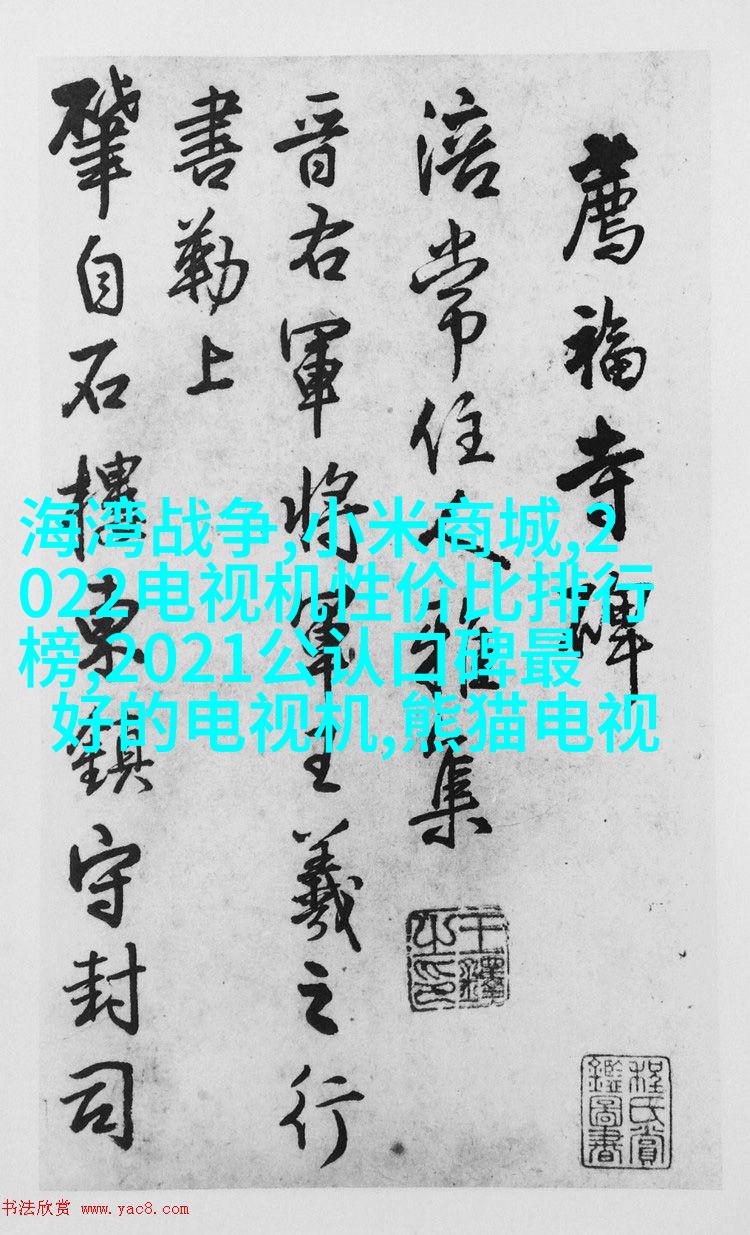 薦福寺碑
涪常住雅集
晉右軍將軍王羲之行
書勒上
肇自石樓東鎮守封司
王鐸之印
程氏賞鑑圖書
海湾战争,小米商城,2
022电视机性价比排行
榜,2021公认口碑最
好的电视机,熊猫电视
书法欣赏 www.yac8.com